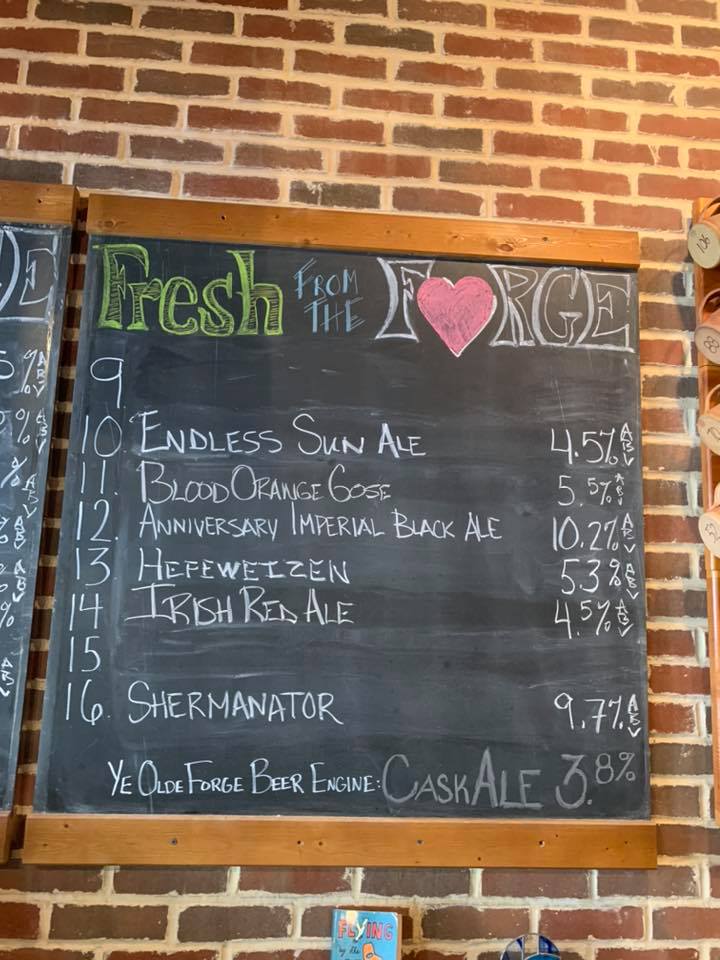 Fresh FROM THE FORGE
9
10. ENDLESS SUN ALE 4.5% ABV
11. BLOOD ORANGE GOSE 5.5% ABV
12. ANNIVERSARY IMPERIAL BLACK ALE 10.2% ABV
13 HEFEWEIZEN 5.3% ABV
14 IRISH RED ALE 4.5% ABV
15
16. SHERMANATOR 9.7% ABV
YE OLDE FORGE BEER ENGINE: CASK ALE 3.8%
FLYING
by the